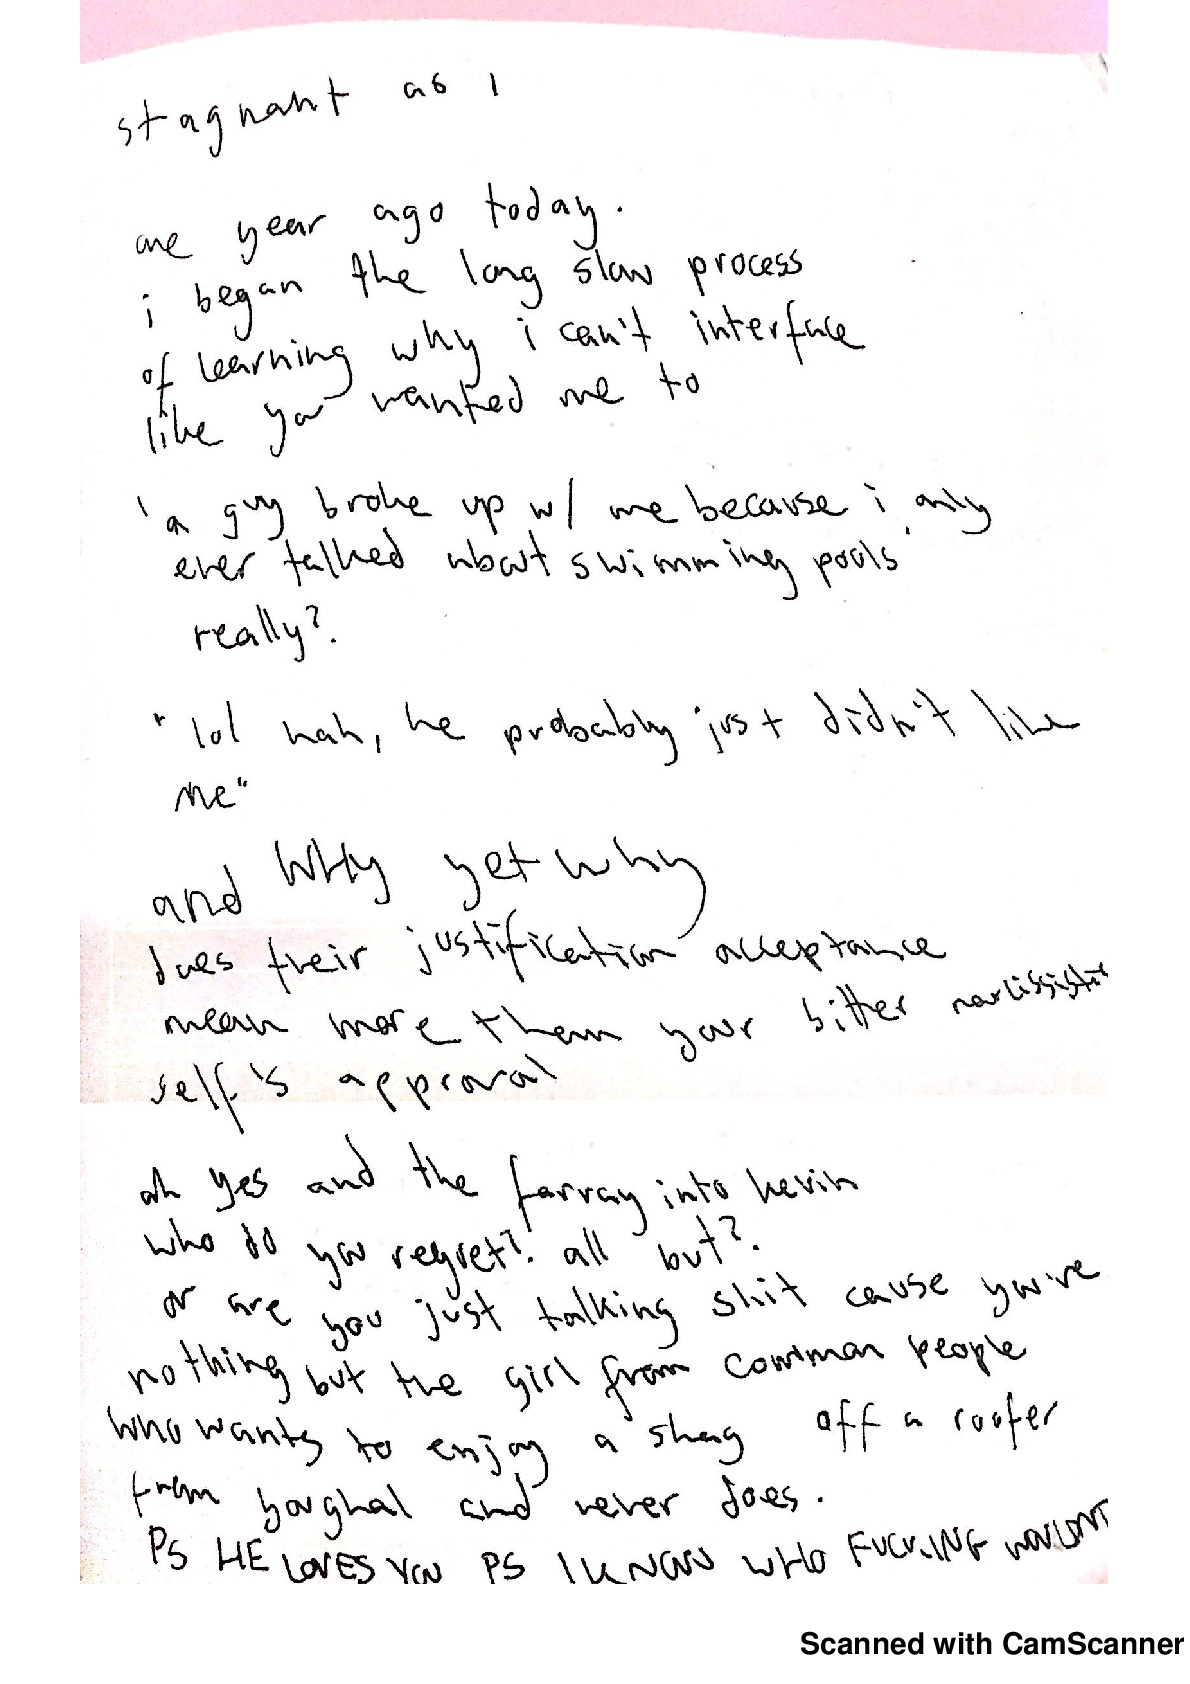 stagnant as i
one year ago today.
i began the long slow process
of learning why i can't interface
like you wanted me to
'a guy broke up w/ me because i only
ever talked about swimming pools'
really?
"lol nah, he probably just didn't like
me"
and WHy yet why
does their justification acceptance
mean more them your bitter narcissistic
self's approval
oh yes and the farray into kevin
who do you regret? all but?
or are you just talking shit cause you're
nothing but the girl from common people
who wants to enjoy a shag off a roofer
from youghal and never does.
PS HE LOVES YOU PS I KNOW WHO FUCKING WOULDNT
Scanned with CamScanner